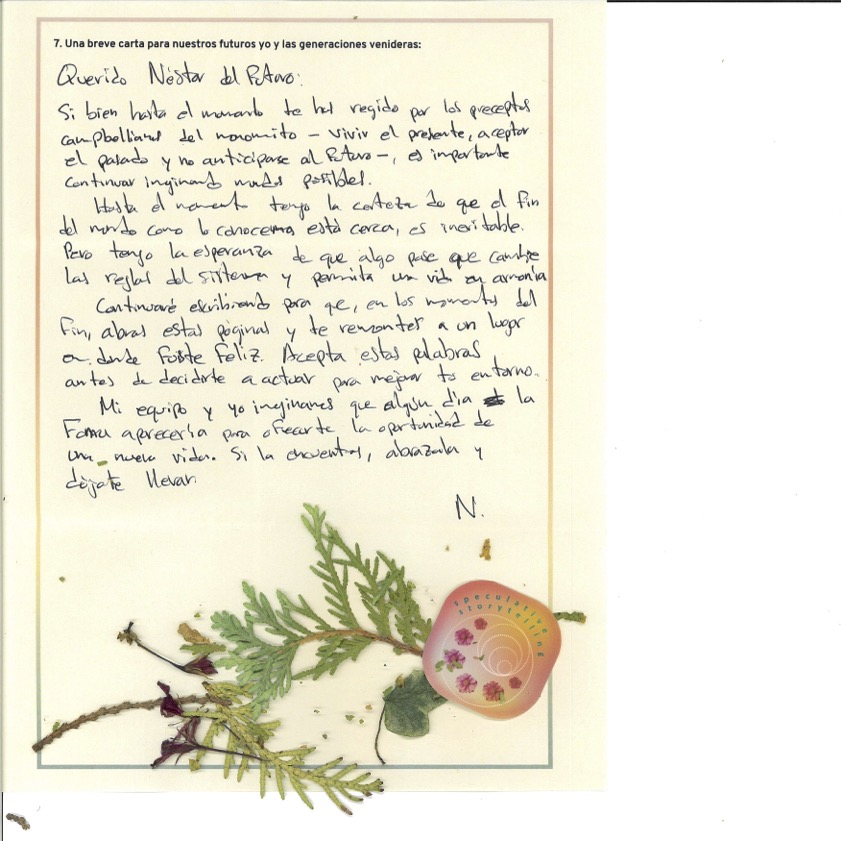 7. Una breve carta para nuestros futuros yo y las generaciones venideras:
Querido Néstor del Futuro:
Si bien hasta el momento te has regido por los preceptos
campbellianos del monomito – vivir el presente, aceptar
el pasado y no anticiparse al futuro –, es importante
continuar imginando mundos posibles.
Hasta el momento tengo la certeza de que el fin
del mundo como lo conocemos está cerca, es inevitable.
Pero tengo la esperanza de que algo pase que cambie
las reglas del sistema y permita una vida en armonía
Continuaré escribiendo para que, en los momentos del
fin, abras estas páginas y te remontes a un lugar
en donde fuiste feliz. Acepta estas palabras
antes de decidirte a actuar para mejorar tu entorno.
Mi equipo y yo imginamos que algún día la
aparecería para ofrecerte la oportunidad de
una nueva vida. Si la encuentras, abrázala y
déjate llevar.
N.
speculative
storytelling